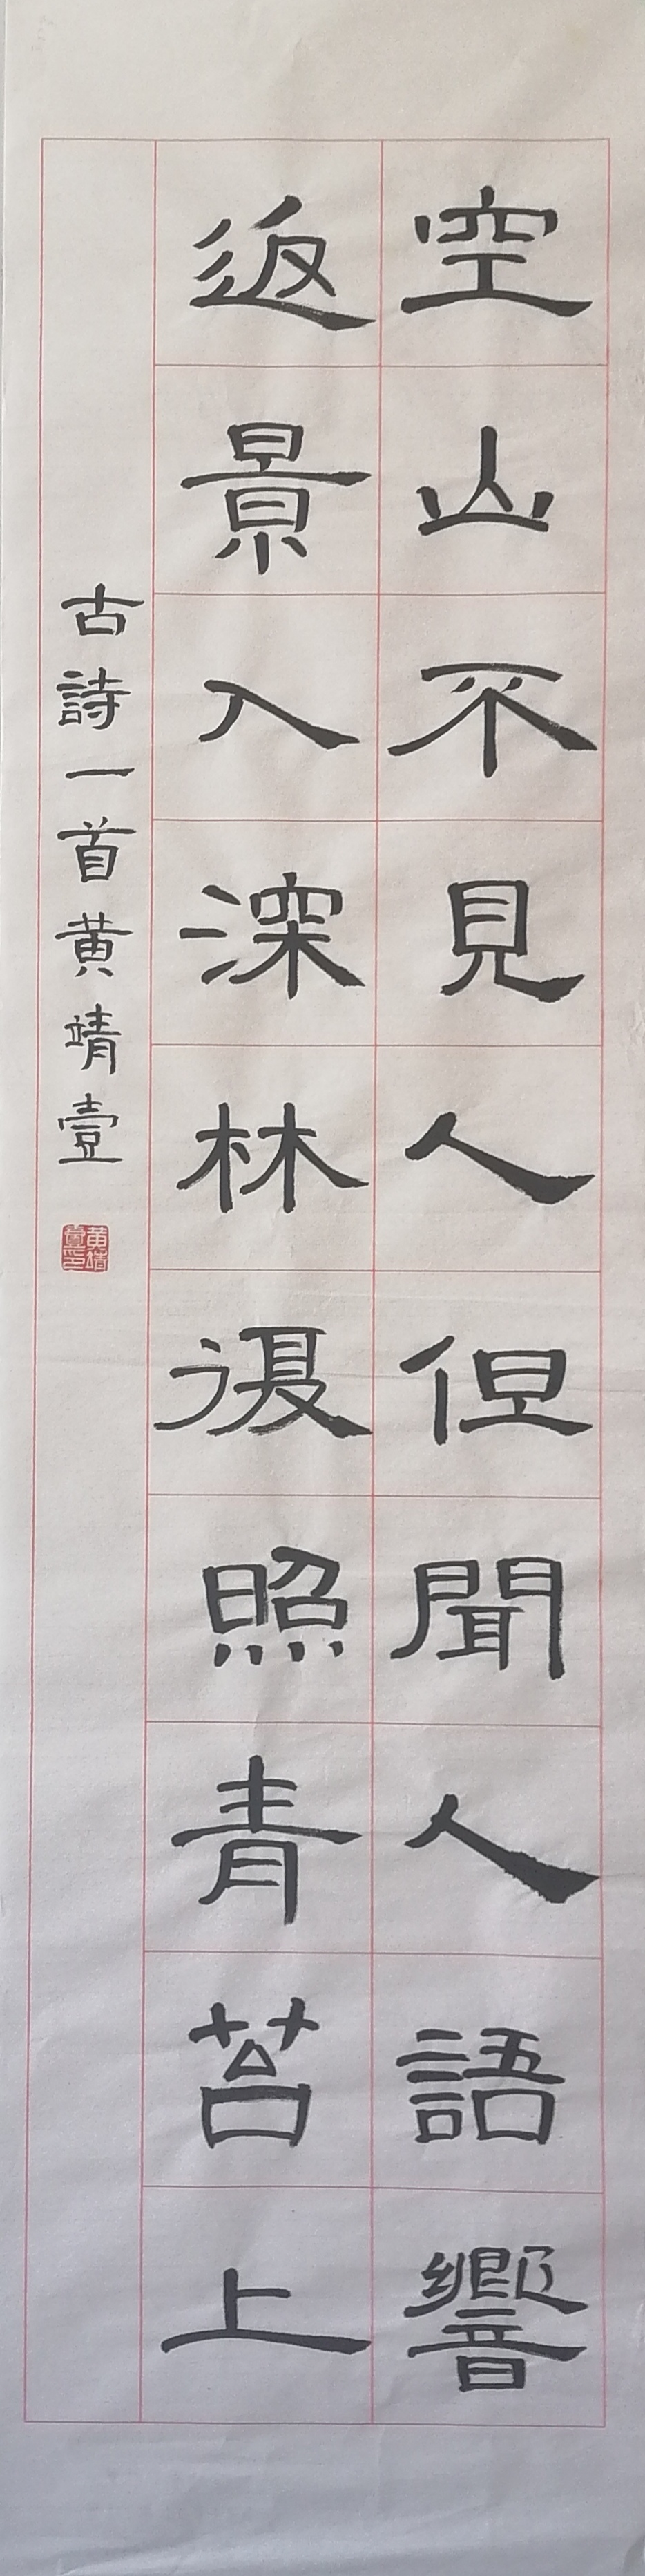 空山不見人但聞人語響
返景入深林復照青苔上
古詩一首黄靖壹
黄靖壹印